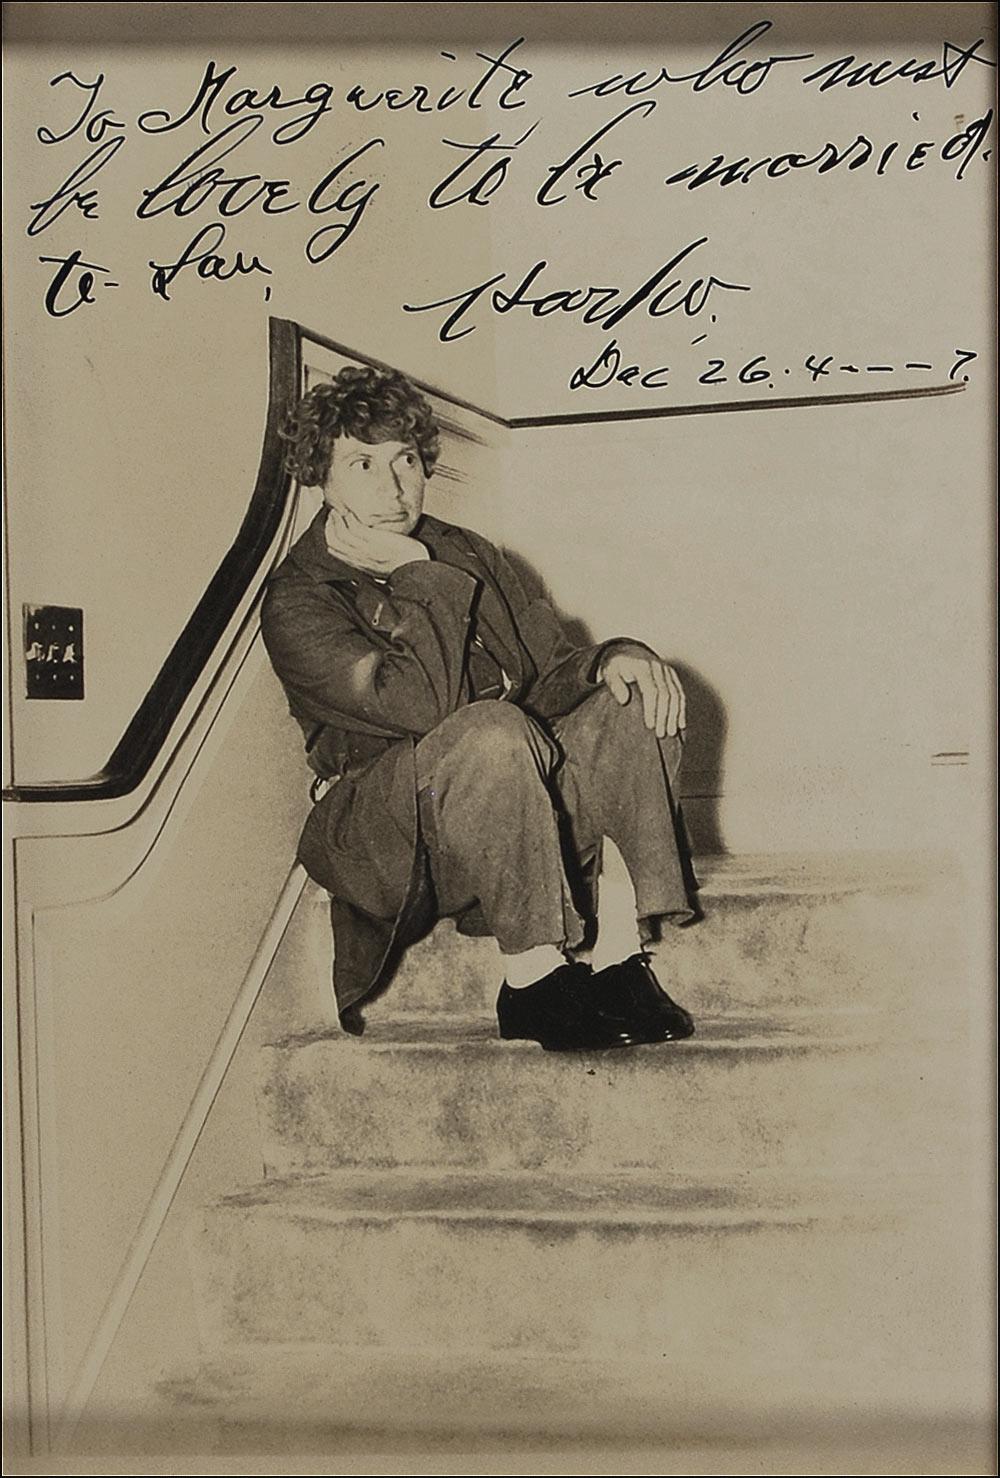 To Marguerite who must
be lovely to be married.
to Sam,
Harpo.
Dec 26. 4---7.